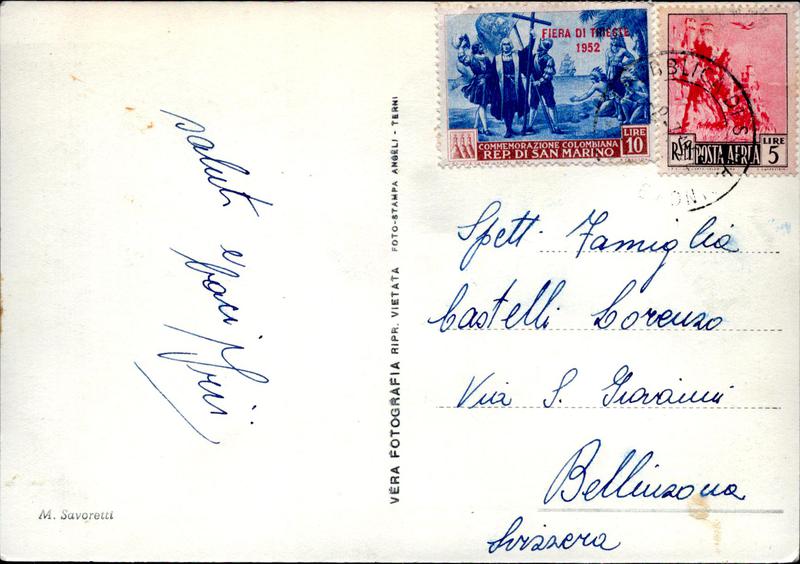 saluti e
baci
M. Savoretti
VERA FOTOGRAFIA RIPR. VIETATA FOTO-STAMPA ANGELI - TERNI
FIERA DI TRIESTE
1952
LIRE
10
COMMEMORAZIONE COLOMBIANA
REP. DI SAN MARINO
LIRE
5
POSTA AEREA
Spett. Famiglia
Castelli Lorenzo
Via S. Giovanni
Bellinzona
Svizzera